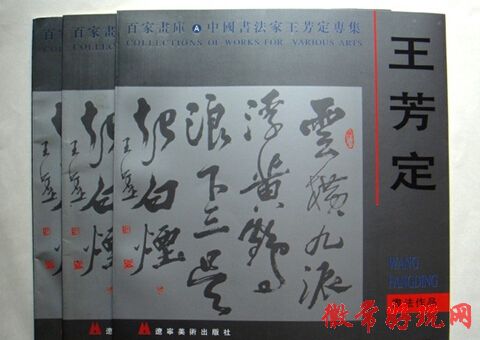 百家畫
COLLECT
百家畫
COLLECT
百家畫庫 A 中國書法家王芳定專集
COLLECTIONS OF WORKS FOR VARIOUS ARTS
雲橫九派
浮黃鶴
浪下三吳
起白煙
王芳定
WANG
FANGDING
書法作品
遼
遼寧美術出版社